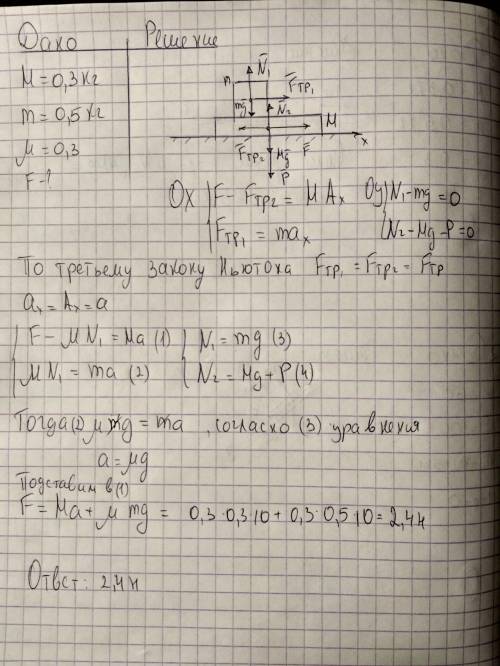 Дано Решение
M = 0,3 кг
m = 0,5 кг
μ = 0,3
F - ?
N₁
m
Fтр₁
mg
N₂
M
x
Fтр₂ Mg F
P
Ox F - Fтр₂ = M Aₓ Oy N₁ - mg = 0
Fтр₁ = maₓ N₂ - Mg - P = 0
По третьему закону Ньютона Fтр₁ = Fтр₂ = Fтр
aₓ = Aₓ = a
F - μN₁ = Ma (1) N₁ = mg (3)
μN₁ = ma (2) N₂ = Mg + P (4)
Тогда (2) μmg = ma, согласно (3) уравнения
a = μg
Подставим в (1)
F = Ma + μmg = 0,3·0,3·10 + 0,3·0,5·10 = 2,4 н
Ответ: 2,4 н